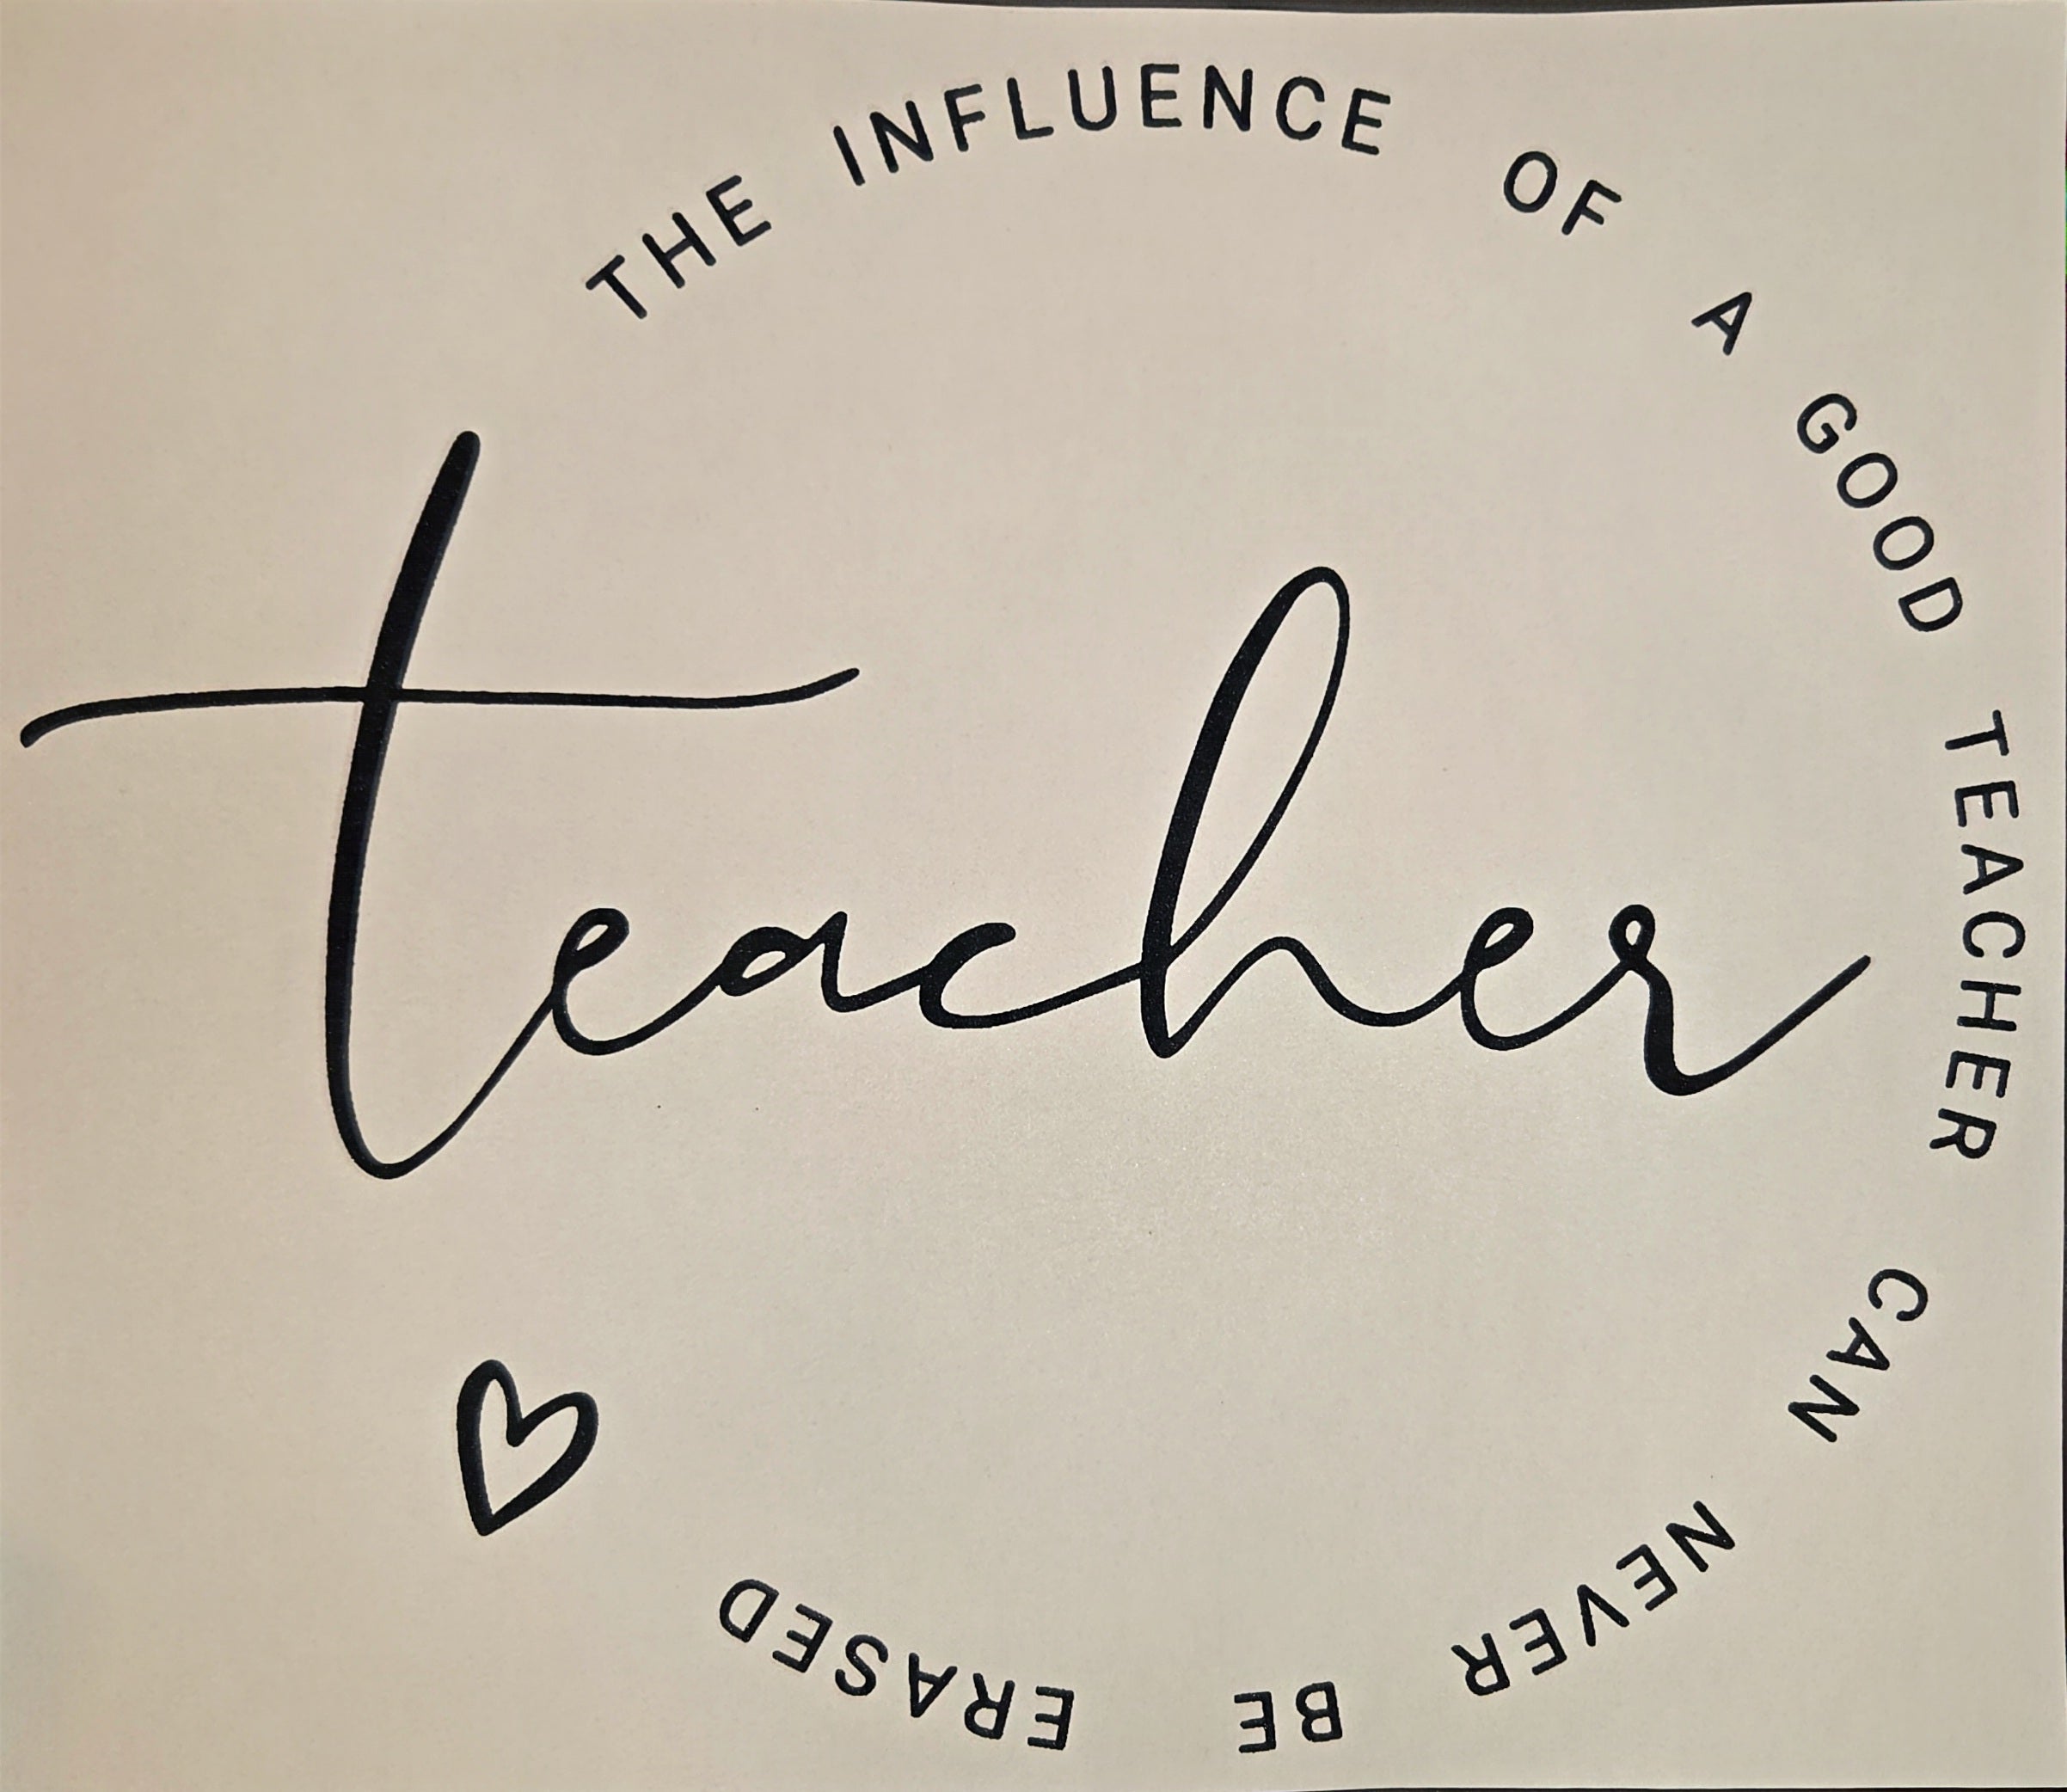 THE INFLUENCE OF A GOOD TEACHER CAN NEVER BE ERASED
teacher